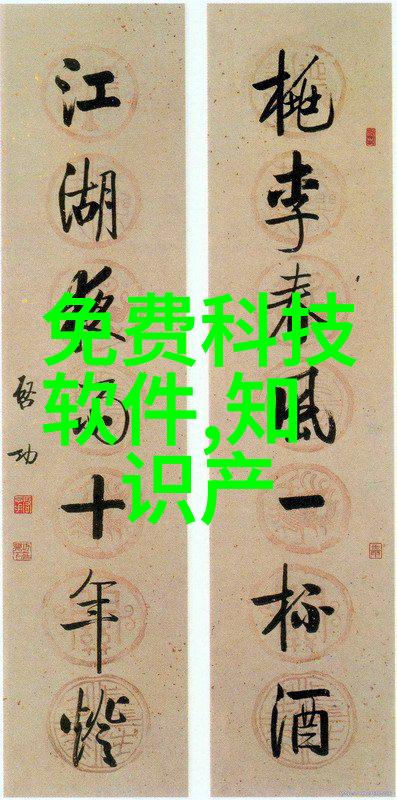 桃李春風一杯酒
江湖夜雨十年燈
启功
免费科技
软件,知
识产